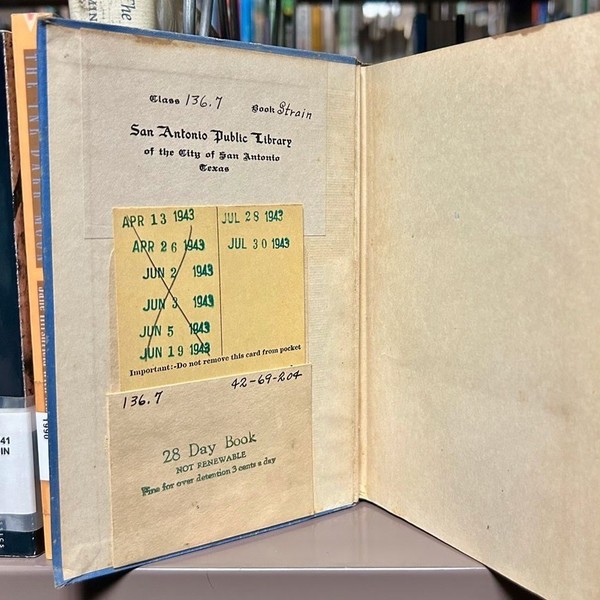 Class 136.7 Book Strain
San Antonio Public Library
of the City of San Antonio
Texas
APR 13 1943
APR 26 1943
JUN 2 1943
JUN 3 1943
JUN 5 1943
JUN 19 1943
JUL 28 1943
JUL 30 1943
Important:-Do not remove this card from pocket
136.7 42-69-204
28 Day Book
NOT RENEWABLE
Fine for over detention 3 cents a day
The
41
IN
1990